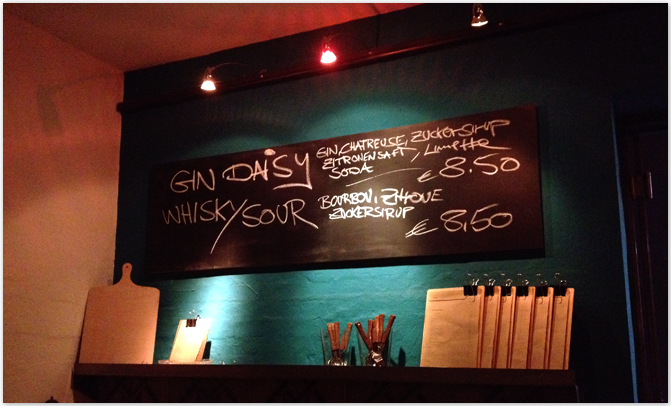 GIN DAISY
GIN, CHATREUSE, ZUCKERSIRUP
ZITRONENSAFT, Limette
SODA
€ 8.50
WHISKY SOUR
BOURBON, ZITRONE
ZUCKERSIRUP
€ 8,50